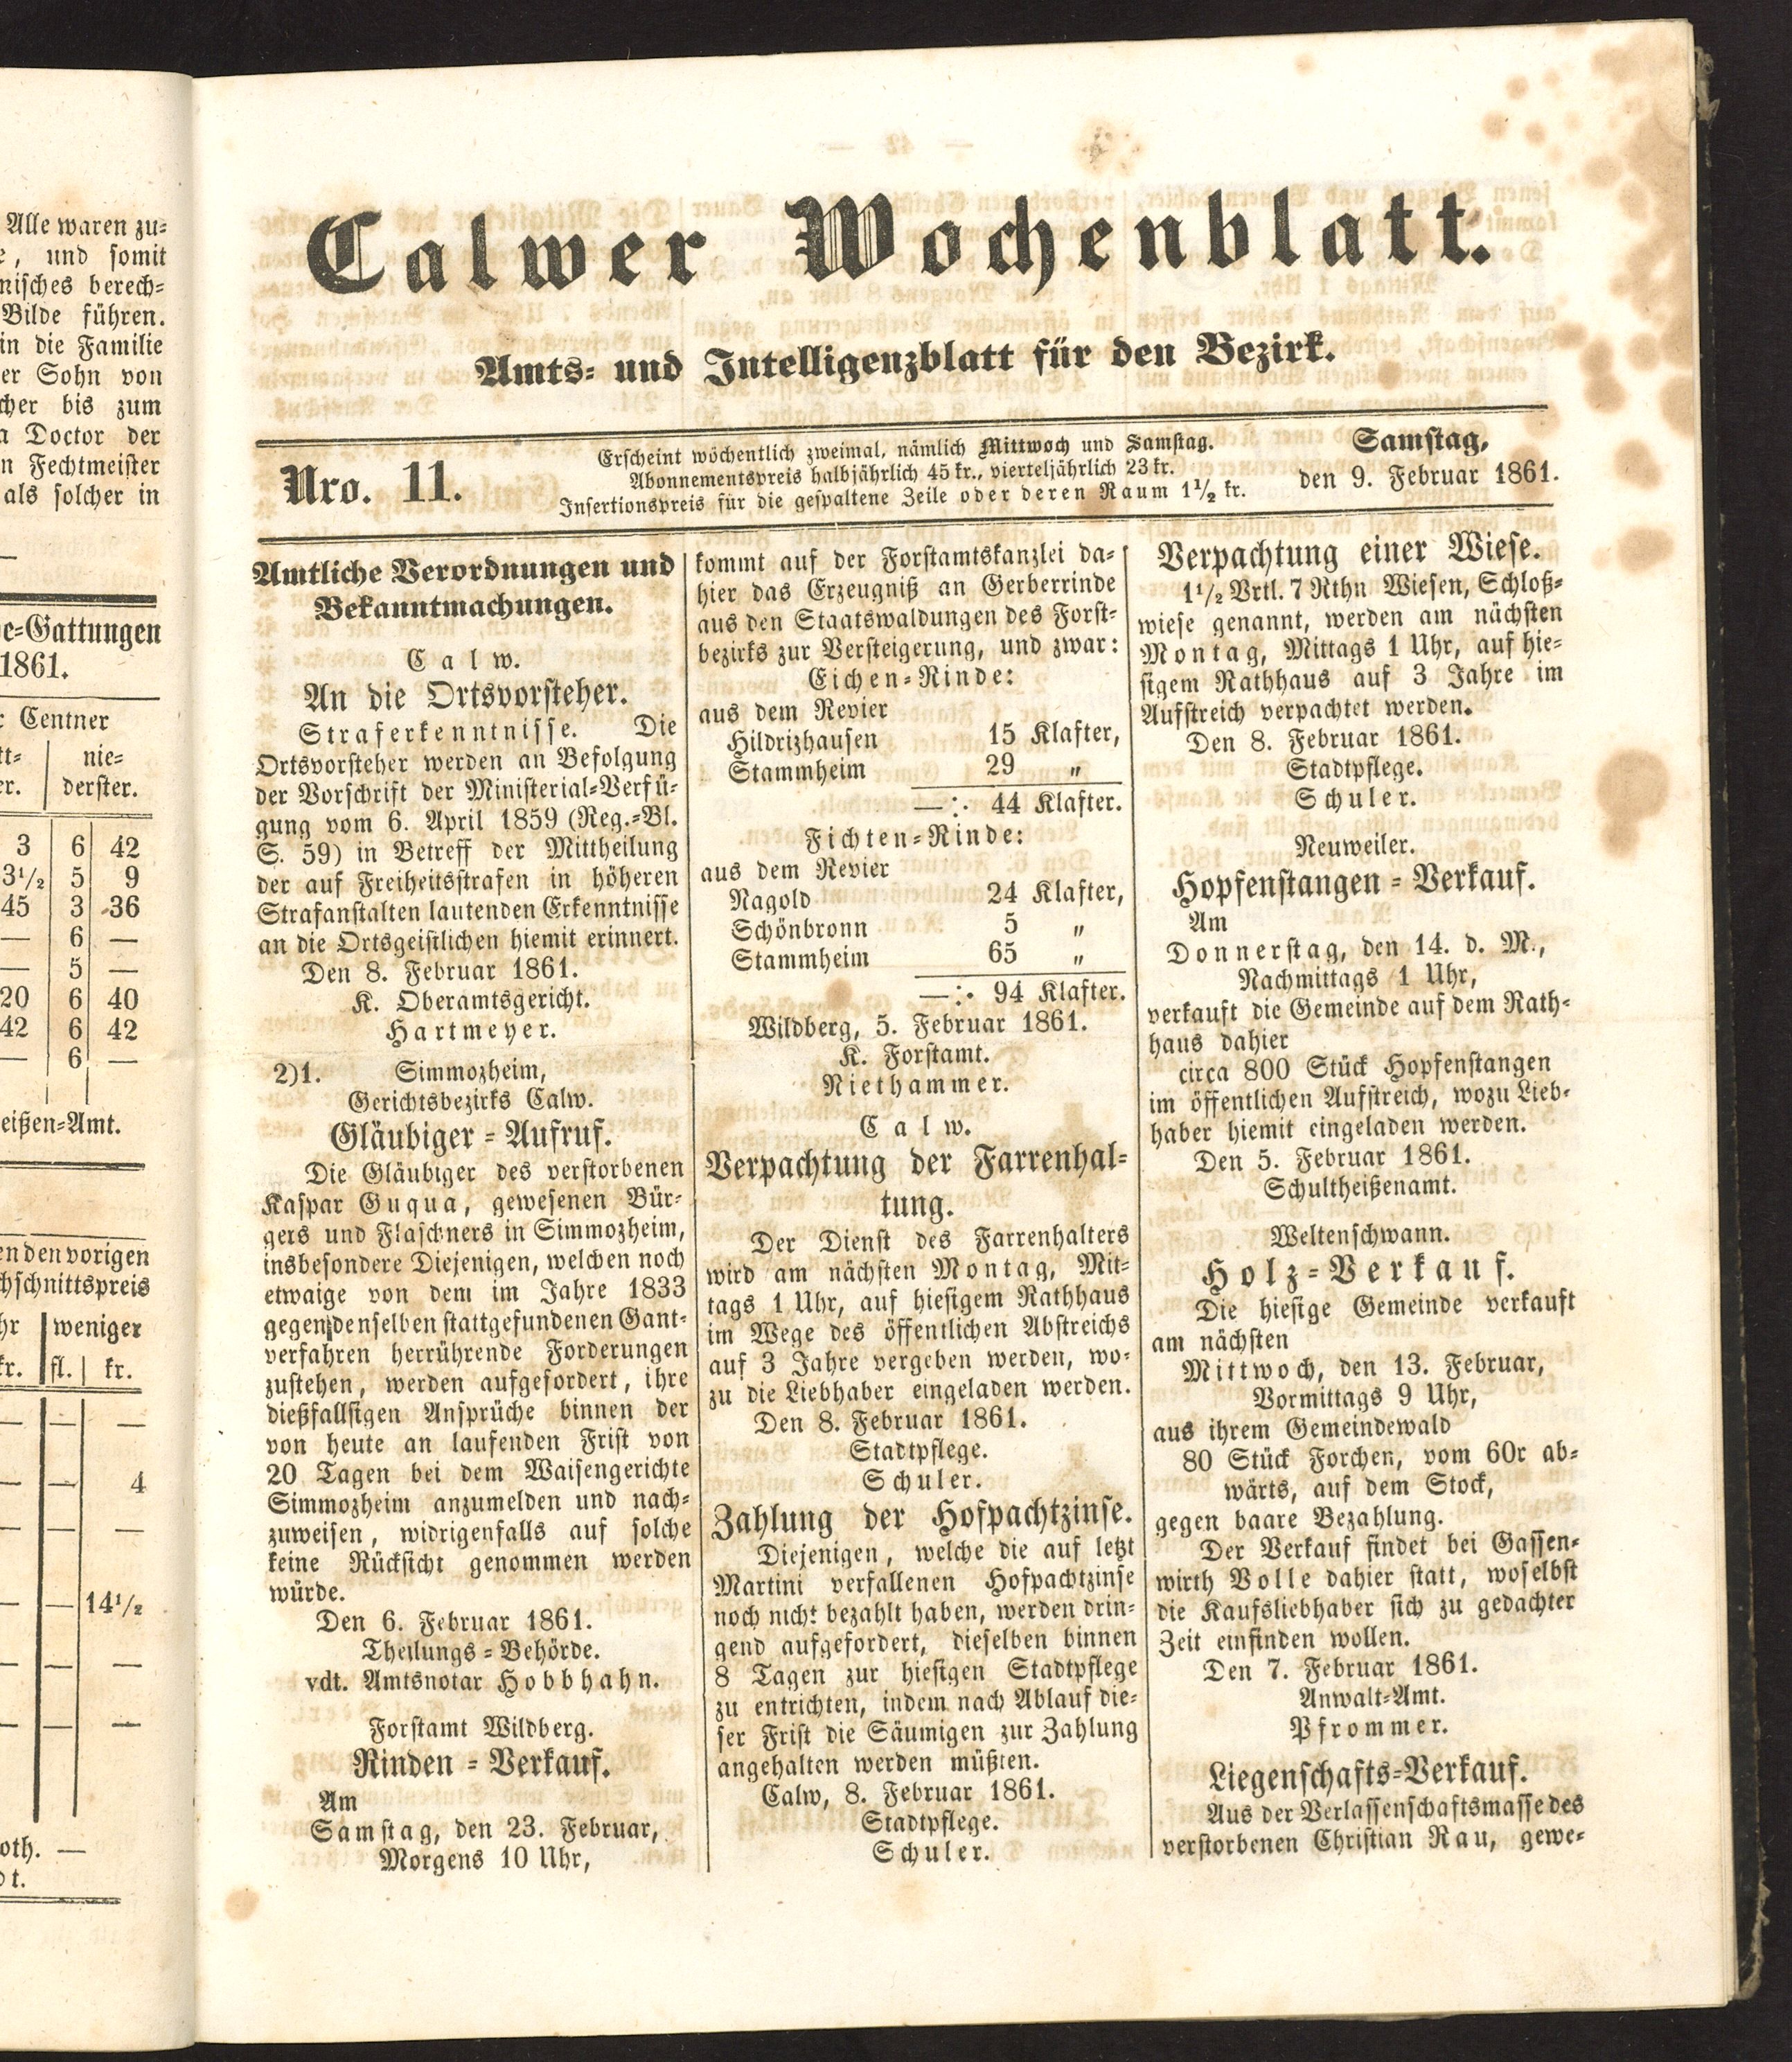 Alle waren zu=
, und somit
nisches berech=
Bilde führen.
in die Familie
er Sohn von
cher bis zum
Doctor der
n Fechtmeister
als solcher in
e=Gattungen
1861.
Centner
nie=
er. derster.
3 6 42
3½ 5 9
45 3 36
— 6 —
— 5 —
20 6 40
42 6 42
— 6 —
eißen=Amt.
en den vorigen
chschnittspreis
hr weniger
kr. fl. kr.
— — —
— — 4
— — —
— — 14½
— — —
— — —
oth. —
dt.
Calwer Wochenblatt.
Amts= und Intelligenzblatt für den Bezirk.
Nro. 11.
Erscheint wöchentlich zweimal, nämlich Mittwoch und Samstag.
Abonnementspreis halbjährlich 45 kr., vierteljährlich 23 kr.
Insertionspreis für die gespaltene Zeile oder deren Raum 1½ kr.
Samstag,
den 9. Februar 1861.
Amtliche Verordnungen und
Bekanntmachungen.
Calw.
An die Ortsvorsteher.
Straferkenntnisse. Die
Ortsvorsteher werden an Befolgung
der Vorschrift der Ministerial=Verfü=
gung vom 6. April 1859 (Reg.=Bl.
S. 59) in Betreff der Mittheilung
der auf Freiheitsstrafen in höheren
Strafanstalten lautenden Erkenntnisse
an die Ortsgeistlichen hiemit erinnert.
Den 8. Februar 1861.
K. Oberamtsgericht.
Hartmeyer.
2)1. Simmozheim,
Gerichtsbezirks Calw.
Gläubiger = Aufruf.
Die Gläubiger des verstorbenen
Kaspar Guqua, gewesenen Bür=
gers und Flaschners in Simmozheim,
insbesondere Diejenigen, welchen noch
etwaige von dem im Jahre 1833
gegen denselben stattgefundenen Gant=
verfahren herrührende Forderungen
zustehen, werden aufgefordert, ihre
dießfallsigen Ansprüche binnen der
von heute an laufenden Frist von
20 Tagen bei dem Waisengerichte
Simmozheim anzumelden und nach=
zuweisen, widrigenfalls auf solche
keine Rücksicht genommen werden
würde.
Den 6. Februar 1861.
Theilungs = Behörde.
vdt. Amtsnotar Hobbhahn.
Forstamt Wildberg.
Rinden = Verkauf.
Am
Samstag, den 23. Februar,
Morgens 10 Uhr,
kommt auf der Forstamtskanzlei da=
hier das Erzeugniß an Gerberrinde
aus den Staatswaldungen des Forst=
bezirks zur Versteigerung, und zwar:
Eichen=Rinde:
aus dem Revier
Hildrizhausen 15 Klafter,
Stammheim 29 „
—:· 44 Klafter.
Fichten=Rinde:
aus dem Revier
Nagold 24 Klafter,
Schönbronn 5 „
Stammheim 65 „
—:· 94 Klafter.
Wildberg, 5. Februar 1861.
K. Forstamt.
Niethammer.
Calw.
Verpachtung der Farrenhal=
tung.
Der Dienst des Farrenhalters
wird am nächsten Montag, Mit=
tags 1 Uhr, auf hiesigem Rathhaus
im Wege des öffentlichen Abstreichs
auf 3 Jahre vergeben werden, wo=
zu die Liebhaber eingeladen werden.
Den 8. Februar 1861.
Stadtpflege.
Schuler.
Zahlung der Hofpachtzinse.
Diejenigen, welche die auf letzt
Martini verfallenen Hofpachtzinse
noch nicht bezahlt haben, werden drin=
gend aufgefordert, dieselben binnen
8 Tagen zur hiesigen Stadtpflege
zu entrichten, indem nach Ablauf die=
ser Frist die Säumigen zur Zahlung
angehalten werden müßten.
Calw, 8. Februar 1861.
Stadtpflege.
Schuler.
Verpachtung einer Wiese.
1½ Vrtl. 7 Rthn Wiesen, Schloß=
wiese genannt, werden am nächsten
Montag, Mittags 1 Uhr, auf hie=
sigem Rathhaus auf 3 Jahre im
Aufstreich verpachtet werden.
Den 8. Februar 1861.
Stadtpflege.
Schuler.
Neuweiler.
Hopfenstangen = Verkauf.
Am
Donnerstag, den 14. d. M.,
Nachmittags 1 Uhr,
verkauft die Gemeinde auf dem Rath=
haus dahier
circa 800 Stück Hopfenstangen
im öffentlichen Aufstreich, wozu Lieb=
haber hiemit eingeladen werden.
Den 5. Februar 1861.
Schultheißenamt.
Weltenschwann.
Holz=Verkauf.
Die hiesige Gemeinde verkauft
am nächsten
Mittwoch, den 13. Februar,
Vormittags 9 Uhr,
aus ihrem Gemeindewald
80 Stück Forchen, vom 60r ab=
wärts, auf dem Stock,
gegen baare Bezahlung.
Der Verkauf findet bei Gassen=
wirth Volle dahier statt, woselbst
die Kaufsliebhaber sich zu gedachter
Zeit einfinden wollen.
Den 7. Februar 1861.
Anwalt=Amt.
Pfrommer.
Liegenschafts=Verkauf.
Aus der Verlassenschaftsmasse des
verstorbenen Christian Rau, gewe=